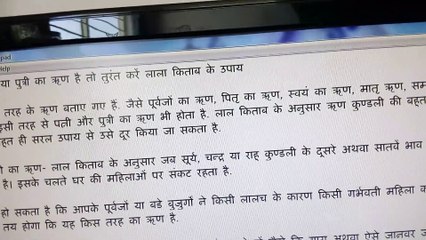 pad
Help
या पुत्री का ऋण है तो तुरंत करें लाला किताब के उपाय
तरह के ऋण बताए गए हैं. जैसे पूर्वजों का ऋण, पितृ का ऋण, स्वयं का ऋण, मातृ ऋण, सम
इसी तरह से पत्नी और पुत्री का ऋण भी होता है. लाल किताब के अनुसार ऋण कुण्डली की बहुत
हुत ही सरल उपाय से उसे दूर किया जा सकता है.
ी का ऋण- लाल किताब के अनुसार जब सूर्य, चन्द्र या राहू कुण्डली के दूसरे अथवा सातवें भाव
है। इसके चलते घर की महिलाओं पर संकट रहता है.
हो सकता है कि आपके पूर्वजों या बड़े बुजुर्गों ने किसी लालच के कारण किसी गर्भवती महिला क
तय होगा कि यह किस तरह का ऋण है.